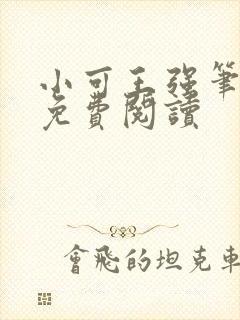 小可王强筆
免費閱讀
會飛的坦克車